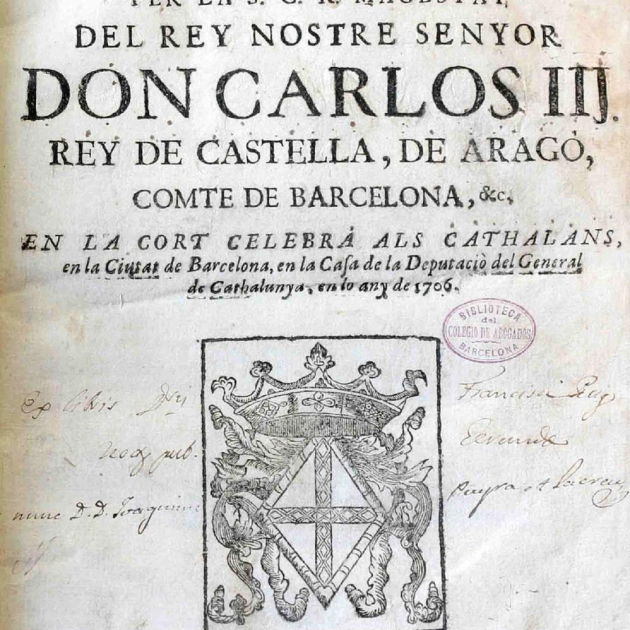 PER LA S. C. R. MAGESTAT,
DEL REY NOSTRE SENYOR
DON CARLOS IIJ.
REY DE CASTELLA, DE ARAGO,
COMTE DE BARCELONA, &c.
EN LA CORT CELEBRÀ ALS CATHALANS,
en la Ciutat de Barcelona, en la Casa de la Deputaciò del General
de Cathalunya, en lo any de 1706.
BIBLIOTECA
del
COLEGIO DE ABOGADOS
BARCELONA
Ex libris
Francisci Puig
nunc D. D.